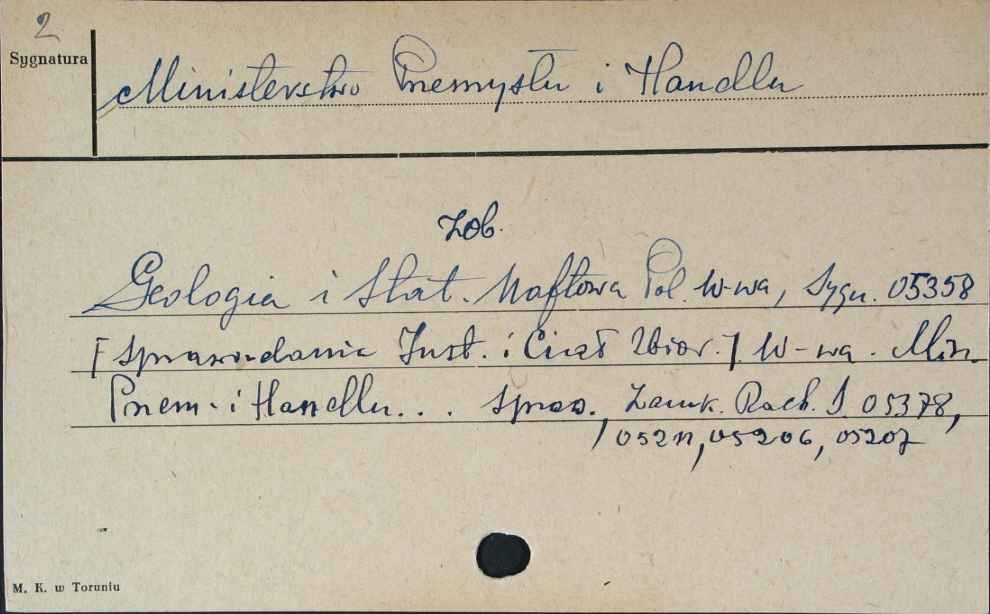 2
Sygnatura
Ministerstwo Przemysłu i Handlu
Zob.
Geologia i Stat. Naftowa Pol. W-wa, Sygn. 05358
[Sprawozdania Inst. i Ciał Zbior.] W-wa. Min.
Przem. i Handlu... Spraw., Zamk. Rach. S 05378,
, 05211, 05206, 05207
M. K. w Toruniu